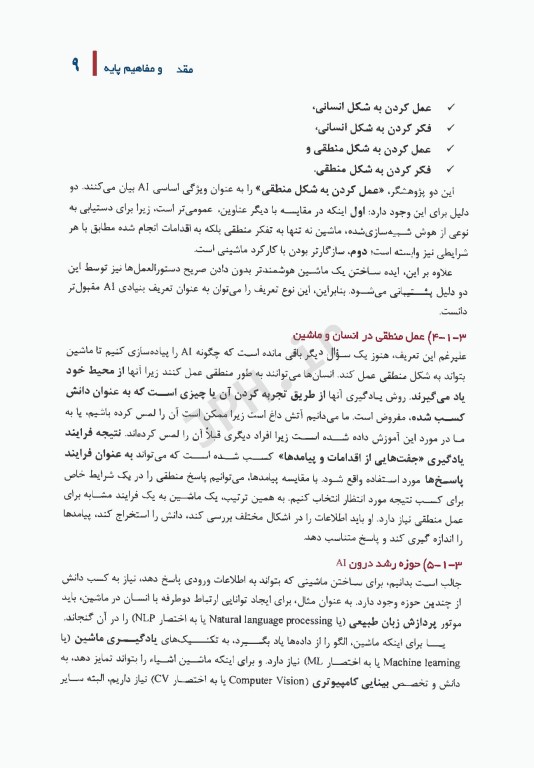 مقد و مفاهیم پایه ۹
✓ عمل کردن به شکل انسانی،
✓ فکر کردن به شکل انسانی،
✓ عمل کردن به شکل منطقی و
✓ فکر کردن به شکل منطقی.
این دو پژوهشگر، «عمل کردن به شکل منطقی» را به عنوان ویژگی اساسی AI بیان می‌کنند. دو
دلیل برای این وجود دارد: اول اینکه در مقایسه با دیگر عناوین، عمومی‌تر است، زیرا برای دستیابی به
نوعی از هوش شبیه‌سازی‌شده، ماشین نه تنها به تفکر منطقی بلکه به اقدامات انجام شده مطابق با هر
شرایطی نیز وابسته است؛ دوم، سازگارتر بودن با کارکرد ماشینی است.
علاوه بر این، ایده ساختن یک ماشین هوشمندتر بدون دادن صریح دستورالعمل‌ها نیز توسط این
دو دلیل پشتیبانی می‌شود. بنابراین، این نوع تعریف را می‌توان به عنوان تعریف بنیادی AI مقبول‌تر
دانست.
۳-۱-۴) عمل منطقی در انسان و ماشین
علیرغم این تعریف، هنوز یک سؤال دیگر باقی مانده است که چگونه AI را پیاده‌سازی کنیم تا ماشین
بتواند به شکل منطقی عمل کند. انسان‌ها می‌توانند به طور منطقی عمل کنند زیرا آنها از محیط خود
یاد می‌گیرند. روش یادگیری آنها از طریق تجربه کردن آن یا چیزی است که به عنوان دانش
کسب شده، مفروض است. ما می‌دانیم آتش داغ است زیرا ممکن است آن را لمس کرده باشیم، یا به
ما در مورد این آموزش داده شده است زیرا افراد دیگری قبلاً آن را لمس کرده‌اند. نتیجه فرایند
یادگیری «جفت‌هایی از اقدامات و پیامدها» کسب شده است که می‌تواند به عنوان فرایند
پاسخ‌ها مورد استفاده واقع شود. با مقایسه پیامدها، می‌توانیم پاسخ منطقی را در یک شرایط خاص
برای کسب نتیجه مورد انتظار انتخاب کنیم. به همین ترتیب، یک ماشین به یک فرایند مشابه برای
عمل منطقی نیاز دارد. او باید اطلاعات را در اشکال مختلف بررسی کند، دانش را استخراج کند، پیامدها
را اندازه گیری کند و پاسخ متناسب دهد.
۳-۱-۵) حوزه رشد درون AI
جالب است بدانیم، برای ساختن ماشینی که بتواند به اطلاعات ورودی پاسخ دهد، نیاز به کسب دانش
از چندین حوزه وجود دارد. به عنوان مثال، برای ایجاد توانایی ارتباط دوطرفه با انسان در ماشین، باید
موتور پردازش زبان طبیعی (یا Natural language processing یا به اختصار NLP) را در آن گنجاند.
یا برای اینکه ماشین، الگو را از داده‌ها یاد بگیرد، به تکنیک‌های یادگیری ماشین (یا
Machine learning یا به اختصار ML) نیاز دارد. و برای اینکه ماشین اشیاء را بتواند تمایز دهد، به
دانش و تخصص بینایی کامپیوتری (Computer Vision یا به اختصار CV) نیاز داریم، البته سایر
JPH.ir